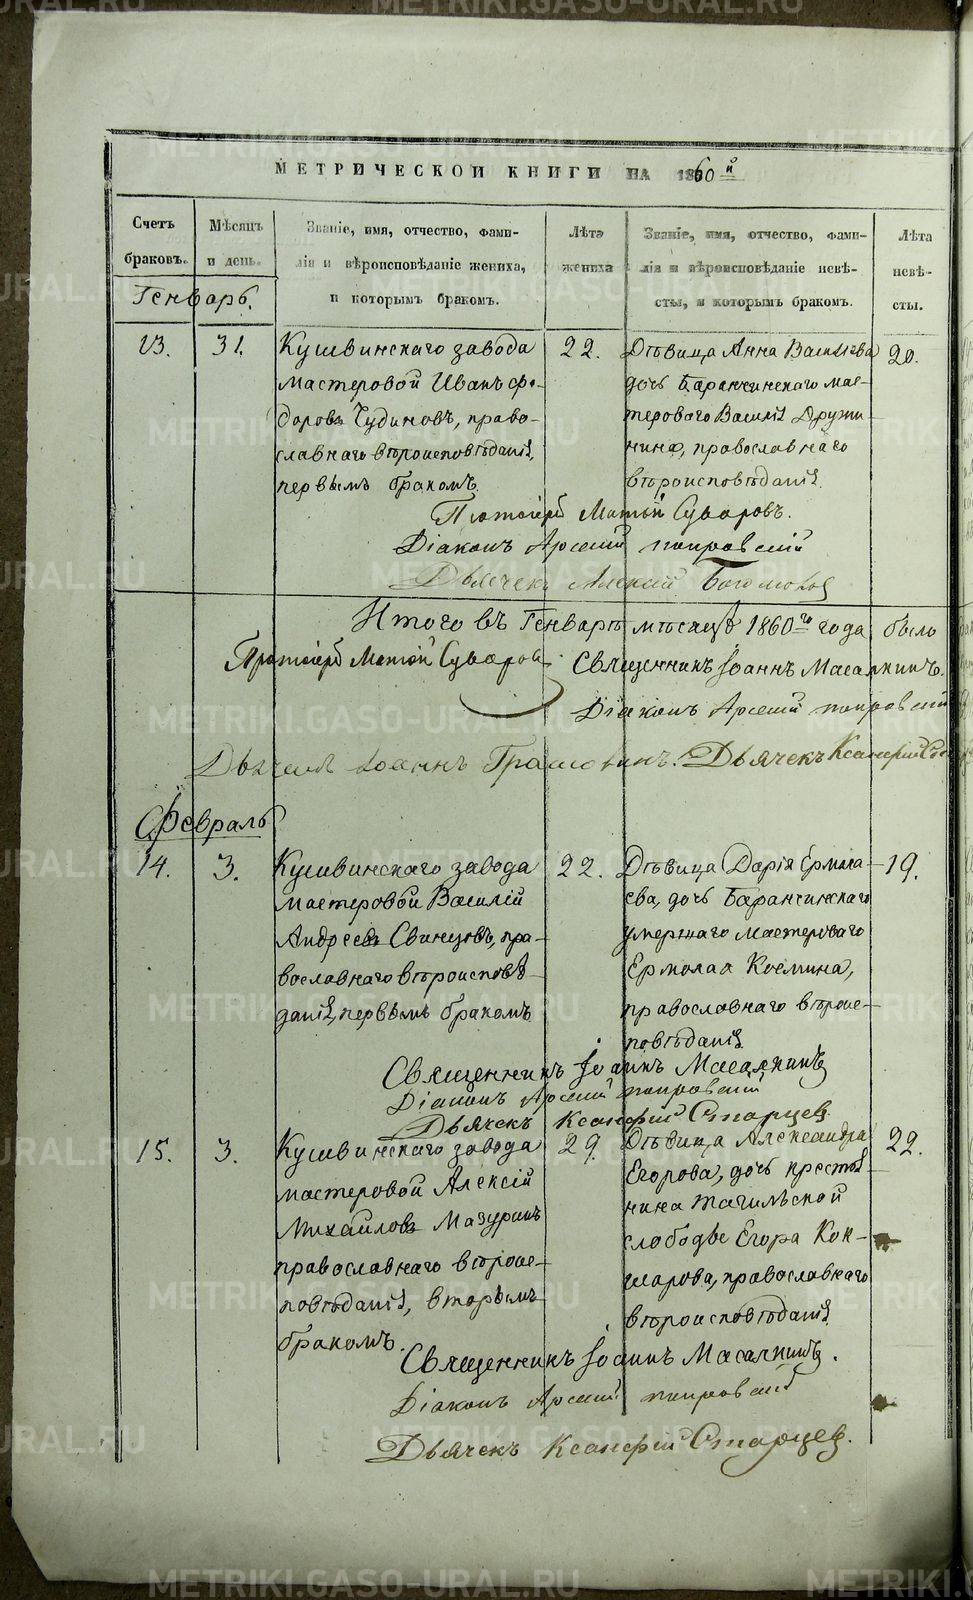 METRIKI.GASO-URAL.RU
МЕТРИЧЕСКОЙ КНИГИ НА 1860й
Счетъ браковъ.
Мѣсяцъ и день.
Званіе, имя, отчество, фами-
лія и вѣроисповѣданіе жениха,
и которымъ бракомъ.
Лѣта жениха
Званіе, имя, отчество, фами-
лія и вѣроисповѣданіе невѣ-
сты, и которымъ бракомъ.
Лѣта невѣ-
сты.
Генварь.
13.
31.
Кушвинскаго завода
мастеровой Иванъ Ѳе-
доровъ Чудиновъ, право-
славнаго вѣроисповѣданія,
первымъ бракомъ.
22.
Дѣвица Анна Васильева
дочь Баранчинскаго мас-
тероваго Василія Дружи-
нина, православнаго
вѣроисповѣданія.
20.
Протоіерей Матѳій Суваровъ.
Діаконъ Арсеній
Дьячекъ Алексій Богомолов
Итого въ Генварѣ мѣсяцѣ 1860го года было
Протоіерей Матѳій Суваровъ
Священникъ Іоаннъ Масалкинъ.
Діаконъ Арсеній
Дьячекъ Іоаннъ
Дьячекъ Ксенофій
Февраль
14.
3.
Кушвинскаго завода
мастеровой Василій
Андреевъ Свинцовъ, пра-
вославнаго вѣроисповѣ-
данія, первымъ бракомъ
22.
Дѣвица Дарія Ермола-
ева, дочь Баранчинскаго
умершаго мастероваго
Ермолая Космина,
православнаго вѣроис-
повѣданія
19.
Священникъ Іоаннъ Масалкинъ
Діаконъ Арсеній
Дьячекъ Ксенофій Старцев
15.
3.
Кушвинскаго завода
мастеровой Алексій
Михайловъ Мазуринъ
православнаго вѣроис-
повѣданія, вторымъ
бракомъ.
29.
Дѣвица Александра
Егорова, дочь крестья-
нина Тагильской
слободы Егора Кок-
шарова, православнаго
вѣроисповѣданія
22.
Священникъ Іоаннъ Масалкинъ.
Діаконъ Арсеній
Дьячекъ Ксенофій Старцев.